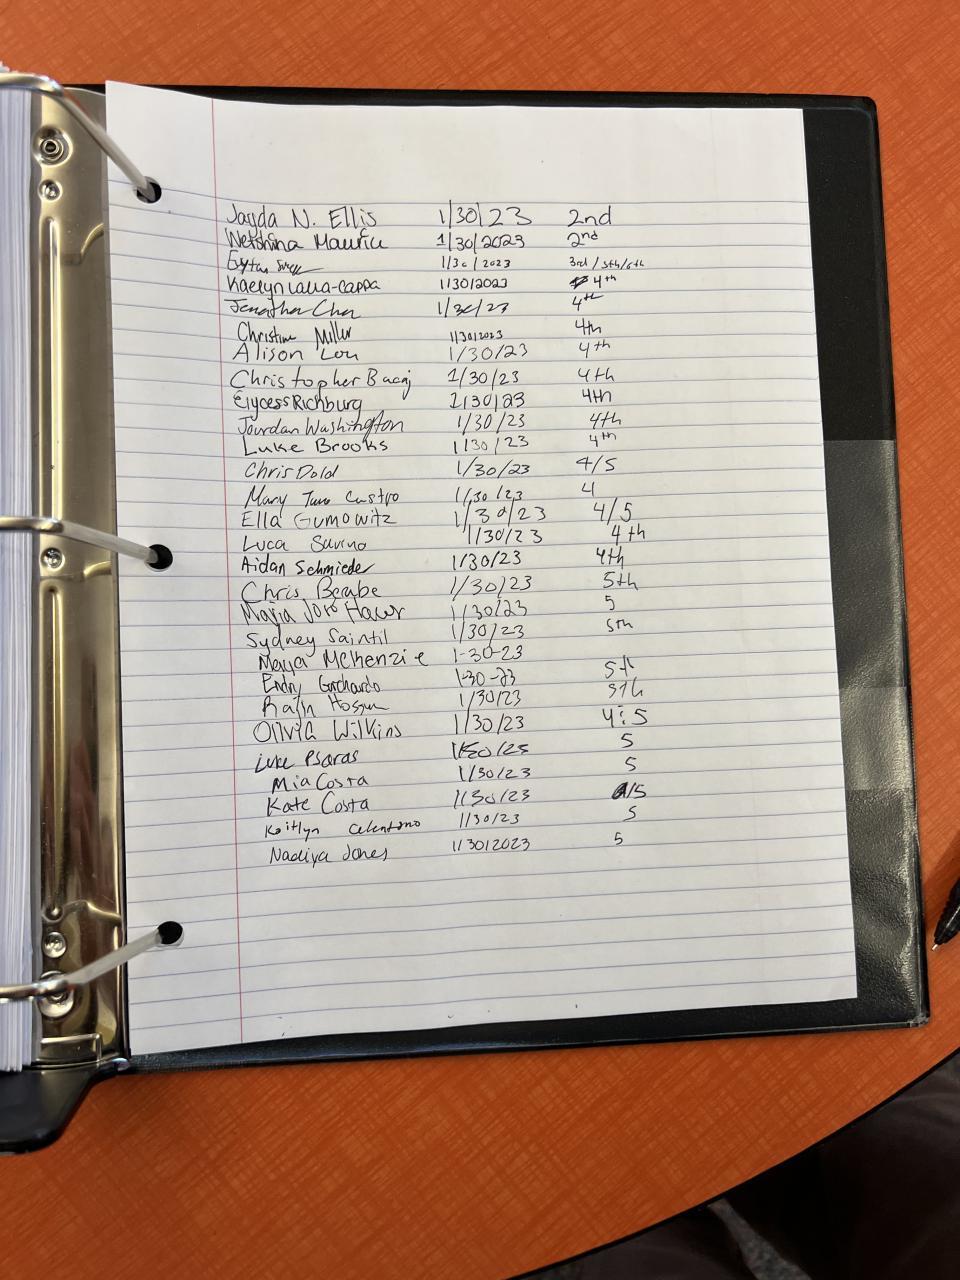 Jayda N. Ellis 1/30/23 2nd
Wetshina Maurice 1/30/2023 2nd
1/30/2023 3rd/5th/6th
Kaelyn 1/30/2023 4th
Jonathan Chen 1/30/23 4th
Christine Miller 1/30/2023 4th
Alison Lou 1/30/23 4th
Christopher Bacaj 1/30/23 4th
Elycess Richburg 1/30/23 4th
Jourdan Washington 1/30/23 4th
Luke Brooks 1/30/23 4th
Chris Dold 1/30/23 4/5
Mary Castro 1/30/23 4
Ella Gumowitz 1/30/23 4/5
Luca Savino 1/30/23 4th
Aidan Schmieder 1/30/23 4th
Chris 1/30/23 5th
Maria José 1/30/23 5
Sydney Saintil 1/30/23 5th
Maya McKenzie 1-30-23
Endry Guchardo 1-30-23 5th
1/30/23 5th
Olivia Wilkins 1/30/23 4:5
Luke Psaras 5
Mia Costa 1/30/23 5
Kate Costa 1/30/23 /5
Kaitlyn Celentano 1/30/23 5
Nadiya Jones 1/30/2023 5